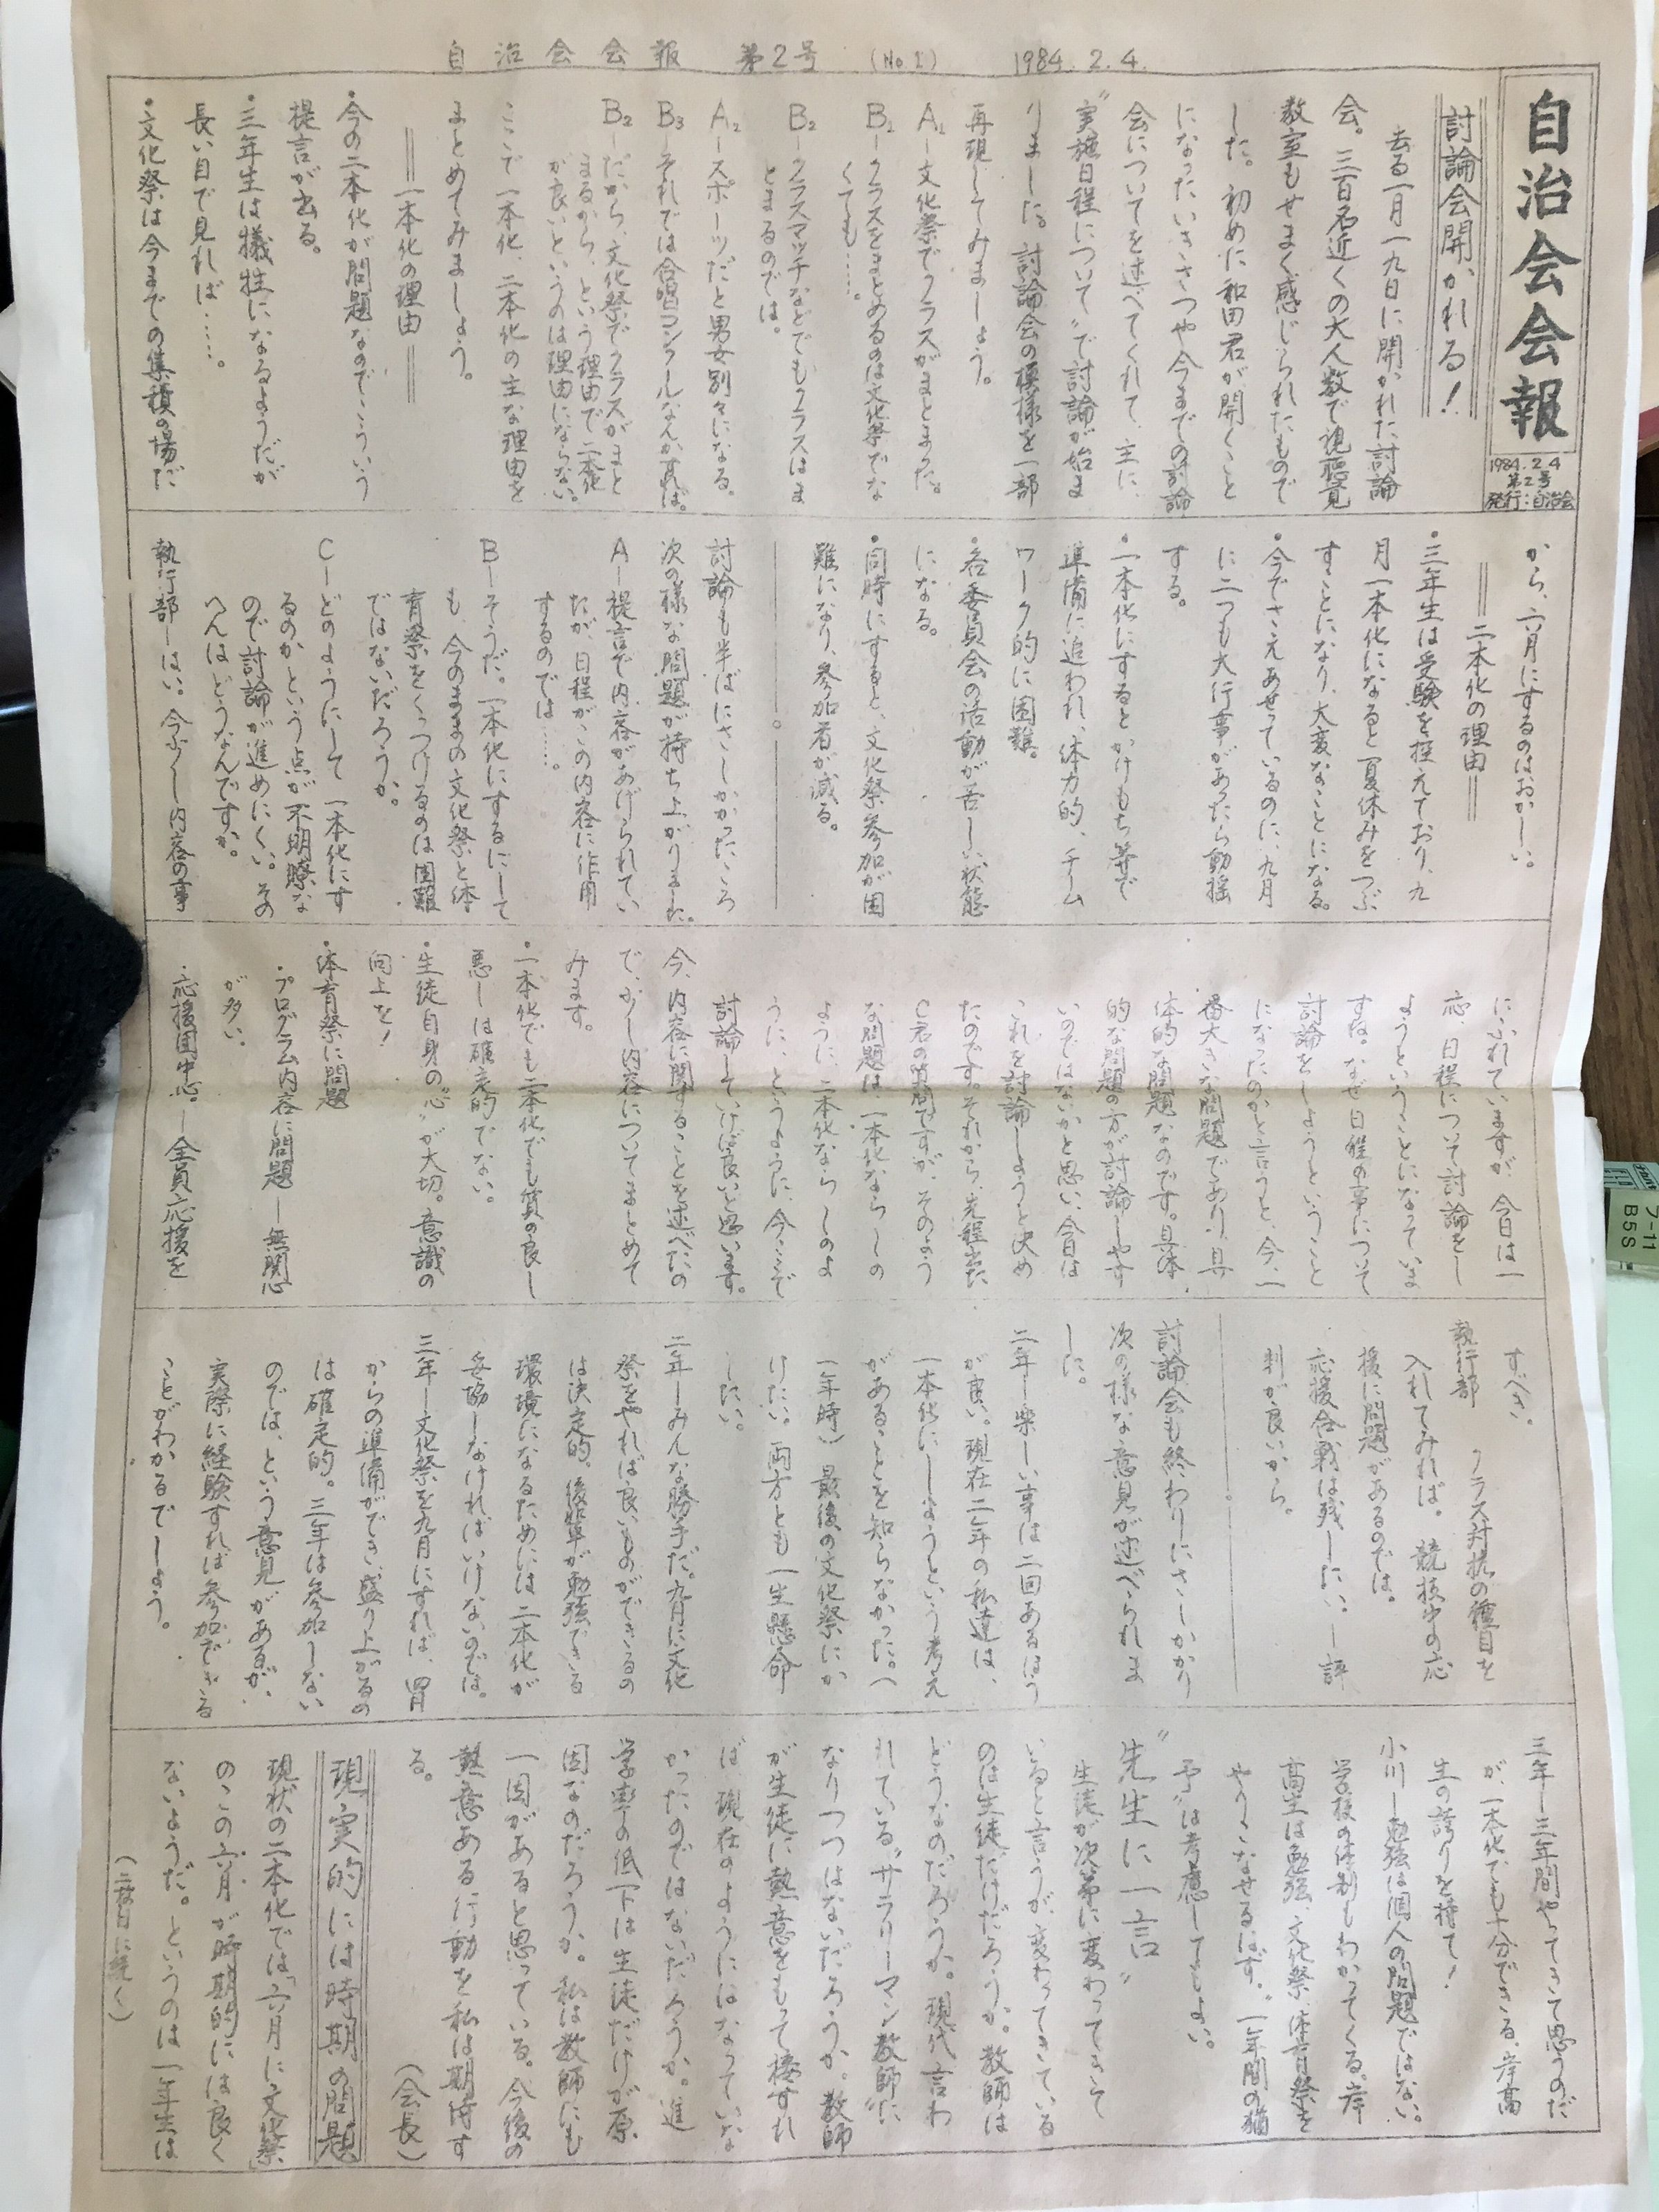 自治会会報 第2号 (No.1) 1984.2.4.
自治会会報
1984.2.4
第2号
発行:自治会
討論会開かれる!
去る一月一九日に開かれた討論
会。三百名近くの大人数で視聴覚
教室もせまく感じられたもので
した。初めに和田君が開くこと
になったいきさつや今までの討論
会についてを述べてくれて、主に、
"実施日程について"で討論が始ま
りました。討論会の模様を一部
再現してみましょう。
A₁―文化祭でクラスがまとまった。
B₁―クラスをまとめるのは文化祭でな
くても……。
B₂―クラスマッチなどでもクラスはま
とまるのでは。
A₂―スポーツだと男女別々になる。
B₃―それでは合唱コンクールなんか有れば。
B₂―だから、文化祭でクラスがまと
まるから、という理由で二本化
が良いというのは理由にならない。
ここで一本化、二本化の主な理由を
まとめてみましょう。
＝一本化の理由＝
・今の二本化が問題なのでこういう
提言が出る。
・三年生は犠牲になるようだが
長い目で見れば……。
・文化祭は今までの集積の場だ
から、六月にするのはおかしい。
＝二本化の理由＝
・三年生は受験を控えており、九
月一本化になると夏休みをつぶ
すことになり、大変なことになる。
・今でさえあせっているのに、九月
に二つも大行事があったら動揺
する。
・一本化にするとかけもち等で
準備に追われ、体力的、チーム
ワーク的に困難。
・各委員会の活動が苦しい状態
になる。
・同時にすると、文化祭参加が困
難になり、参加者が減る。
討論も半ばにさしかかったころ
次の様な問題が持ち上がりました。
A―提言で内容があげられてい
たが、日程がこの内容に作用
するのでは……。
B―そうだ。一本化にするにして
も、今のままの文化祭と体
育祭をくっつけるのは困難
ではないだろうか。
C―どのようにして一本化にす
るのかという点が不明瞭な
ので討論が進めにくい。その
へんはどうなんですか。
執行部―はい。今少し内容の事
にふれていますが、今日は一
応、日程について討論をし
ようということになっていま
すね。なぜ日程の事について
討論をしようということ
になったのかと言うと、今、一
番大きな問題であり、具
体的な問題なのです。具体
的な問題の方が討論しやす
いのではないかと思い、今日は
これを討論しようと決め
たのです。それから、先程出た
C君の質問ですが、そのよう
な問題は、一本化なら―の
ように、二本化なら―のよ
うに、というように、今ここで
討論していけば良いと思います。
今、内容に関することを述べたの
で、少し内容についてまとめて
みます。
・一本化でも二本化でも質の良し
悪しは確定的でない。
・生徒自身の"心"が大切。意識の
向上を!
・体育祭に問題
・プログラム内容に問題―無関心
が多い。
・応援団中心―全員応援を
すべき。
執行部 クラス対抗の種目を
入れてみれば。競技中の応
援に問題があるのでは。
応援合戦は残したい。―評
判が良いから。
討論会も終わりにさしかかり
次の様な意見が述べられま
した。
二年―楽しい事は二回あるほう
が良い。現在二年の私達は、
一本化にしようという考え
があることを知らなかった。(
一年時) 最後の文化祭にか
けたい。両方とも一生懸命
したい。
二年―みんな勝手だ。九月に文化
祭をやれば良いものができるの
は決定的。後輩が勉強できる
環境になるためには二本化が
妥協しなければいけないのでは。
三年―文化祭を九月にすれば、四月
からの準備ができ、盛り上がるの
は確定的。三年は参加しない
のでは、という意見があるが、
実際に経験すれば参加できる
ことがわかるでしょう。
三年―三年間やってきて思うのだ
が、一本化でも十分できる。岸高
生の誇りを持て!
小川―勉強は個人の問題ではない。
学校の体制もわかってくる。岸
高生は勉強、文化祭、体育祭を
やりこなせるはず。"一年間の猶
予"は考慮してもよい。
"先生に一言"
生徒が次第に変わってきて
いると言うが、変わってきている
のは生徒だけだろうか。教師は
どうなのだろうか。現代言わ
れている"サラリーマン教師"に
なりつつはないだろうか。教師
が生徒に熱意をもって接すれ
ば、現在のようにはなっていな
かったのではないだろうか。進
学率の低下は生徒だけが原
因なのだろうか。私は教師にも
一因があると思っている。今後の
熱意ある行動を私は期待す
る。 (会長)
現実的には時期の問題
現状の二本化では「六月に文化祭」
のこの六月が時期的には良く
ないようだ。というのは一年生は
(二枚目に続く)
フ-11
B5S